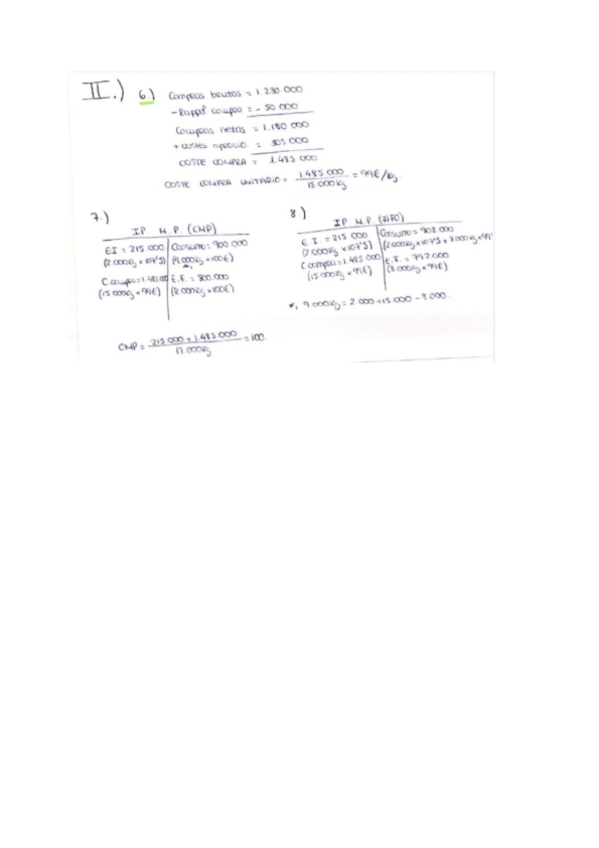 II.) 6.) Compras brutas = 1.230.000
- Rappel compra = - 50 000
Compras netas = 1.180 000
+ costes aprovio. = 305 000
COSTE COMPRA = 1.485 000
COSTE COMPRA UNITARIO = 1.485 000 / 15.000kg = 99€/kg
7.)
IP M.P. (CMP)
EI = 215.000 | Consumo = 900 000
(2.000kg × 107'5) | (9.000kg × 100€)
*,
Compra = 1.485.000 | E.F. = 800.000
(15 000kg × 99€) | (8 000kg × 100€)
CMP = 215 000 + 1.485 000 / 17.000kg = 100
8)
IP M.P. (FIFO)
E.I. = 215 000 | Consumo = 908.000
(2 000kg × 107'5) | (2.000kg × 107'5 + 7.000kg × 99
Compra = 1.485 000 | E.F. = 792 000
(15 000kg × 99€) | (8.000kg × 99€)
*, 9.000kg = 2.000 + 15.000 - 8.000.